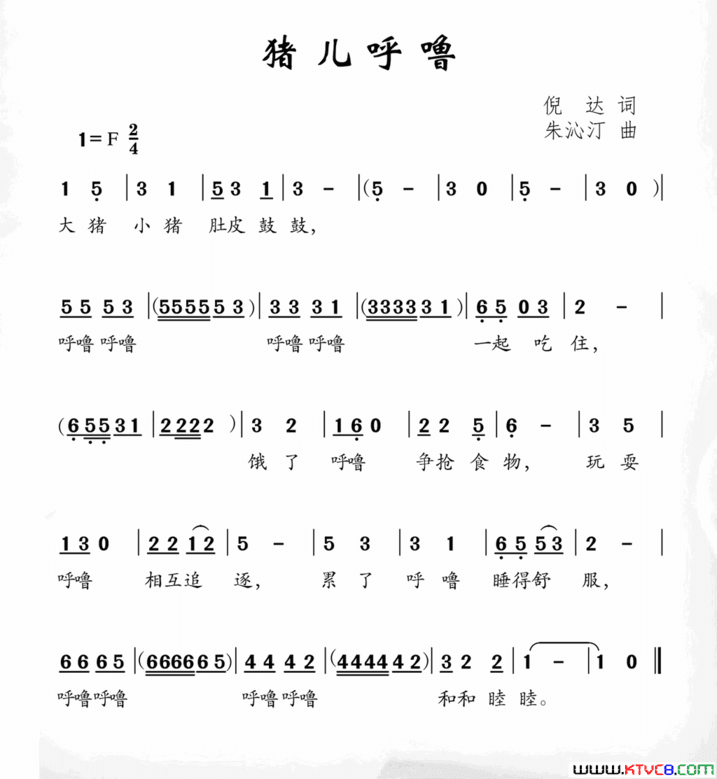 猪儿呼噜
倪达 词
1=F 2/4
朱沁汀 曲
1 5 | 3 1 | 5 3 1 | 3 - | (5 - | 3 0 | 5 - | 3 0 )|
大猪 小猪 肚皮鼓鼓,
5 5 5 3 |(5 5 5 5 5 3)| 3 3 3 1 |(3 3 3 3 3 1)| 6 5 0 3 | 2 - |
呼噜呼噜 呼噜呼噜 一起 吃住,
(6 5 5 3 1 | 2 2 2 2 )| 3 2 | 1 6 0 | 2 2 5 | 6 - | 3 5 |
饿了 呼噜 争抢食物, 玩耍
1 3 0 | 2 2 1 2 | 5 - | 5 3 | 3 1 | 6 5 5 3 | 2 - |
呼噜 相互追逐, 累了 呼噜 睡得舒服,
6 6 6 5 |(6 6 6 6 6 5)| 4 4 4 2 |(4 4 4 4 4 2)| 3 2 2 | 1 - | 1 0 ‖
呼噜呼噜 呼噜呼噜 和和睦睦。
www.KTVC8.com